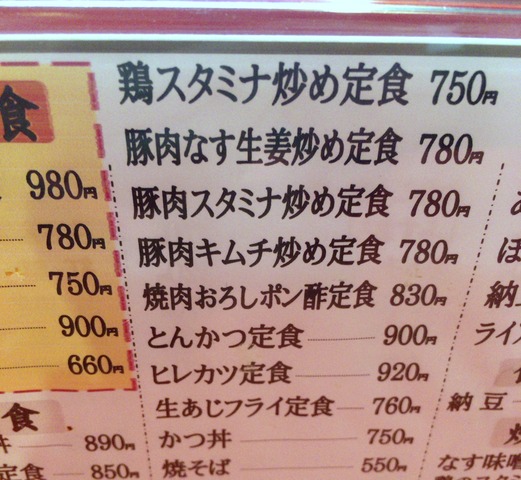 食
980円
780円
750円
900円
660円
食
丼 890円
定食 850円
鶏スタミナ炒め定食 750円
豚肉なす生姜炒め定食 780円
豚肉スタミナ炒め定食 780円
豚肉キムチ炒め定食 780円
焼肉おろしポン酢定食 830円
とんかつ定食 900円
ヒレカツ定食 920円
生あじフライ定食 760円
かつ丼 750円
焼そば 550円
ほ
納
ライ
納豆
なす味噌